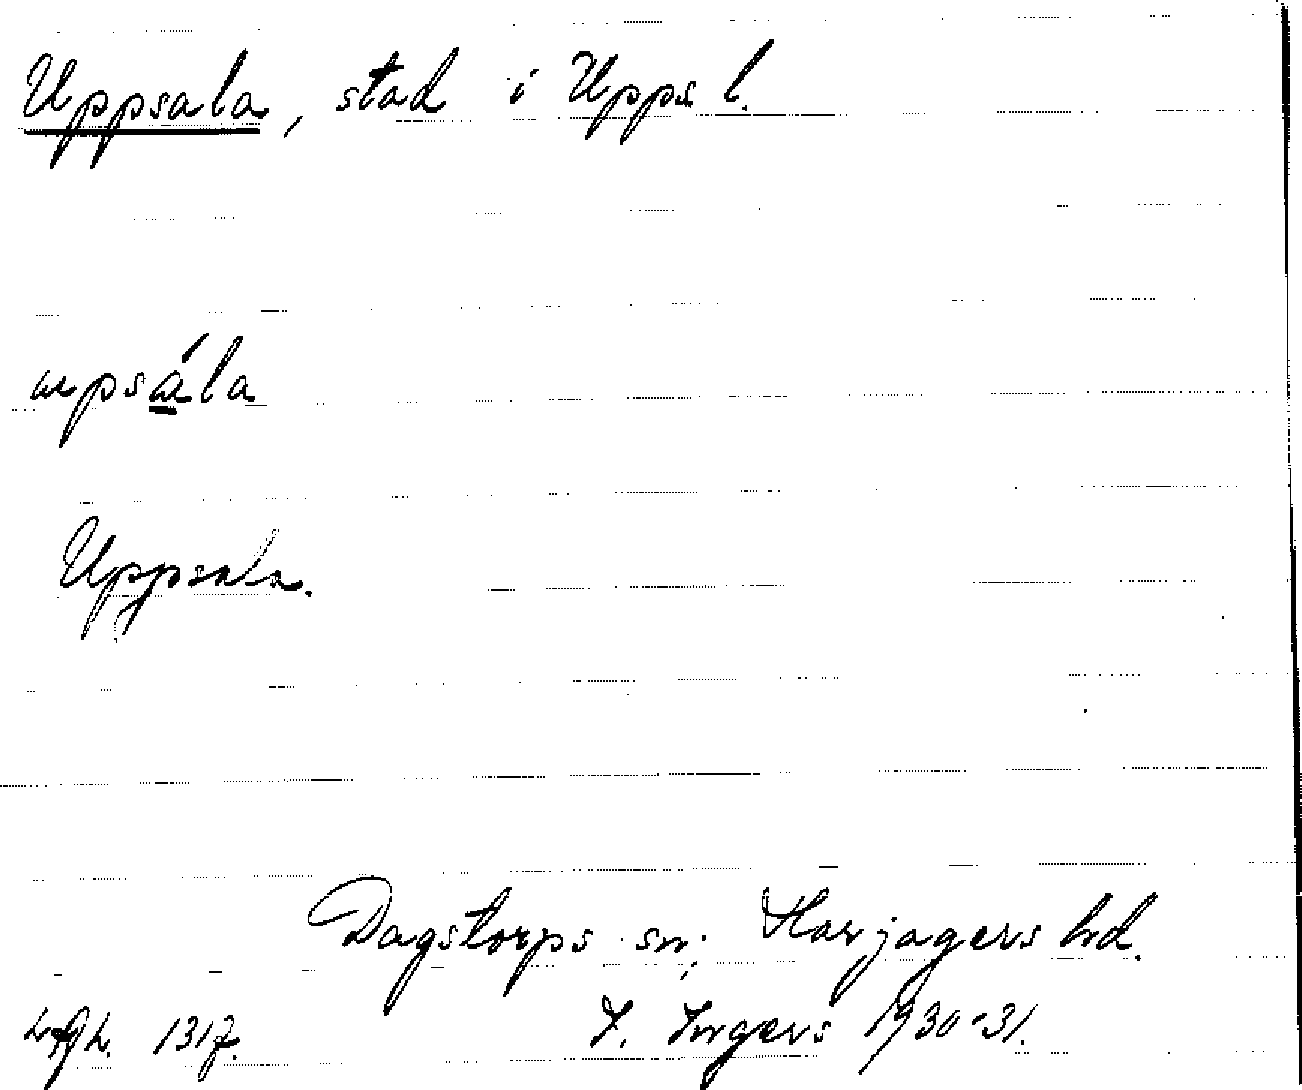 Uppsala, stad i Upps. l.
upsála
Uppsala.
Dagstorps sn; Harjagers hd.
1317. I. Ingers 1930-31.